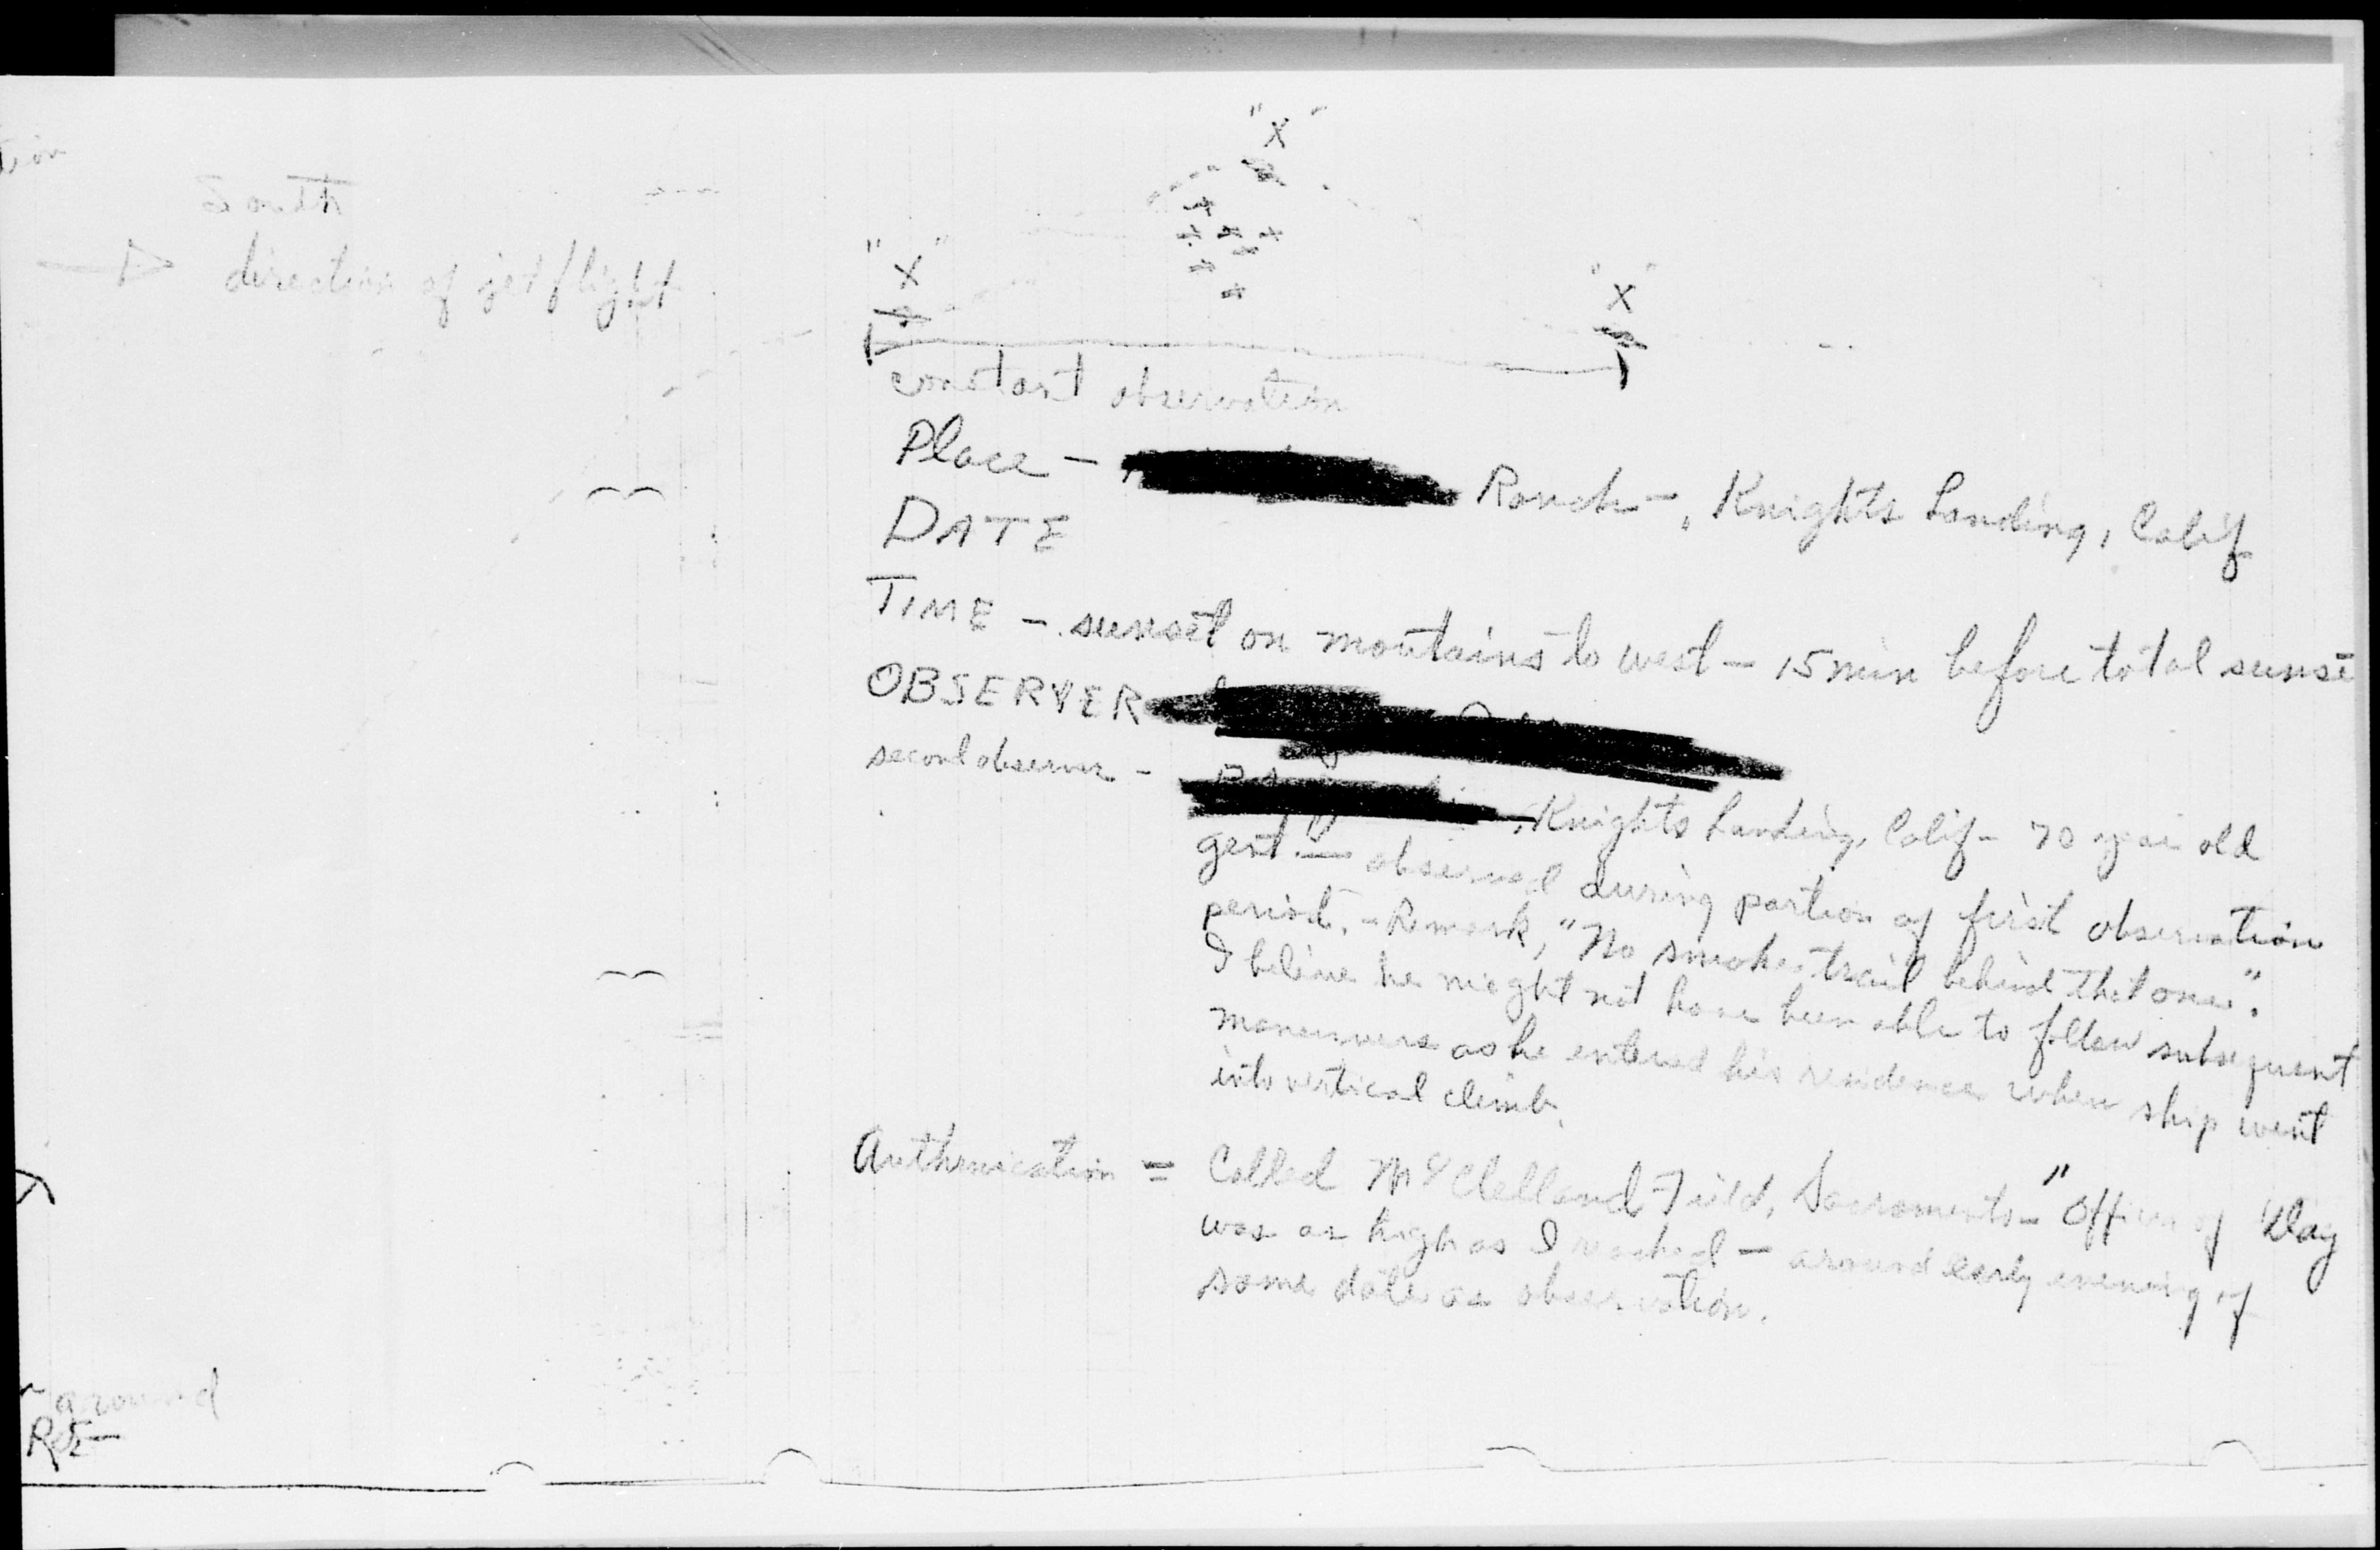 tion
South
direction of jet flight
"X"
"X"
"X"
constant observation
Place - Ranch -, Knights Landing, Calif
DATE
TIME - sunset on mountains to west - 15 min before total sunse
OBSERVER
second observer -
, Knights Landing, Calif - 70 year old
gent. - observed during portion of first observation
period. - Remark, "No smoke trail behind that one".
I believe he might not have been able to follow subsequent
maneuvers as he entered his residence when ship went
into vertical climb.
Authenication = Called McClelland Field, Sacramento - "Officer of Day
was as high as I reached - around early evening of
same date as observation.
ground